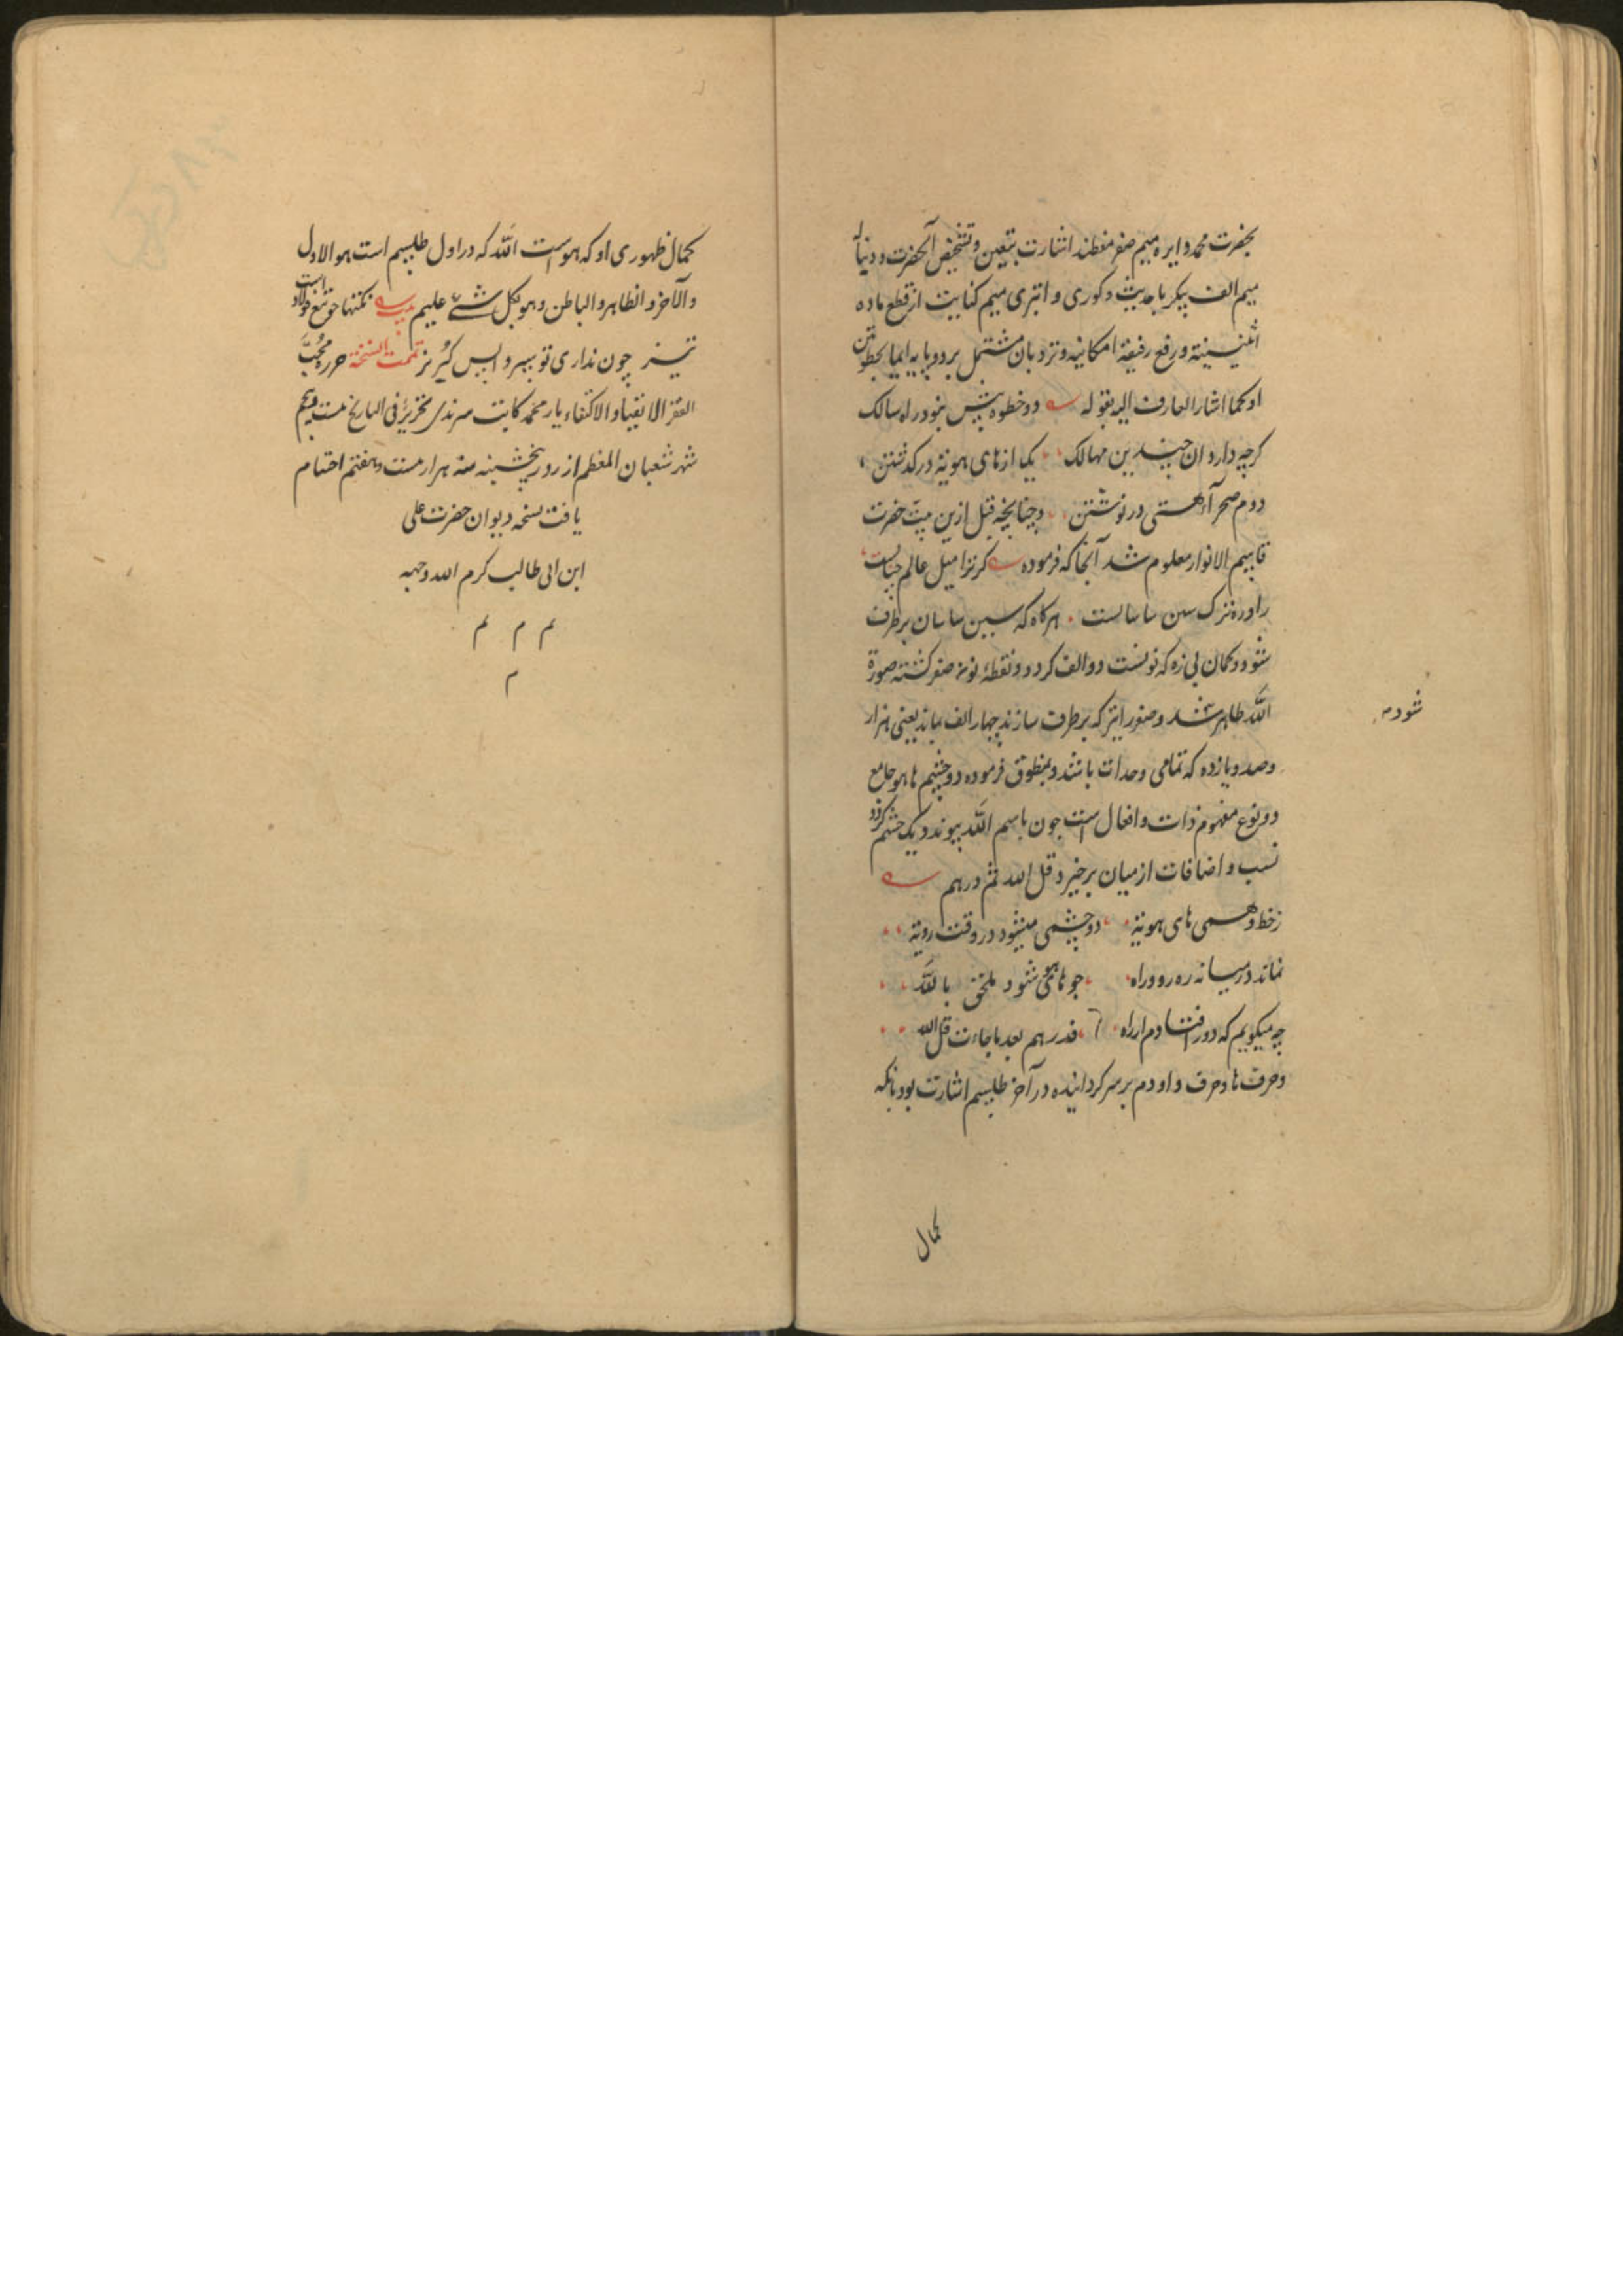 بحضرت محمد و دایره میم صفر مغطند اشارت بتعین و تشخیص آنحضرت و دنباله
میم الف پیکر باحدیت و کوری و ابتری میم کنایت از قطع ماده
اثنینیة و رفع رقیقه امکانیه و نردبان مشتمل بر دو پایه ایما بخطوتین
او کما اشار العارف الیه بقوله دو خطوه بیش نبود راه سالک
کرچه دارد ان چندین مهالک یکی از های هویة درکذشتن
دوم صحرآء هستی درنوشتن و چنانچه قبل ازین بیت حضرت
قاسم الانوار معلوم شد آنجا که فرموده کر ترا میل عالم جانست
راه و ره ترک سین ساسانست هرکاه که سین ساسان برطرف
شود و کمان بی زه که نونست دو الف کردد و نقطهٔ نونه صفر کشته صورة
الله ظاهر شد و صفور ابتر که برطرف سازند چهار الف بماند یعنی هزار
شود
و صد و یازده که تمامی وحدات باشد و بمنطوق فرموده دو چشم ها هو جامع
دو نوع مفهوم ذات و افعال است چون باسم الله پیوندد یک چشم کردد
نسب و اضافات از میان برخیزد قل الله ثم ذرهم
ز خط وهمی های هویة دو چشمی میشود در وقت رویة
نماند در میانه ره رو و راه چو های هو شود ملحق بالله
چه میکویم که دور افتادم از راه فذرهم بعد ما جاءت قل الله
و حرف ها و حرف واو دم بر سر کردانیده در آخر طلسم اشارت بود بانکه
کمال
کمال ظهوری او که هو است الله که در اول طلسم است هو الاول
و الآخر و الظاهر و الباطن و هو بکل شئ علیم بیت نکتها چو تیغ فولاد است
تیز چون نداری تو سپر واپس کریز تمت النسخة حرره محب
الفقر الاتقیا و الاکتفاء یار محمد کاتب سرندی تحریرٌ فی التاریخ بیست پنجم
شهر شعبان المعظم از روز پنجشنبه سنه هزار بیست و هفتم اختتام
یافت نسخه دیوان حضرت علی
ابن ابی طالب کرم الله وجهه
م م م
م